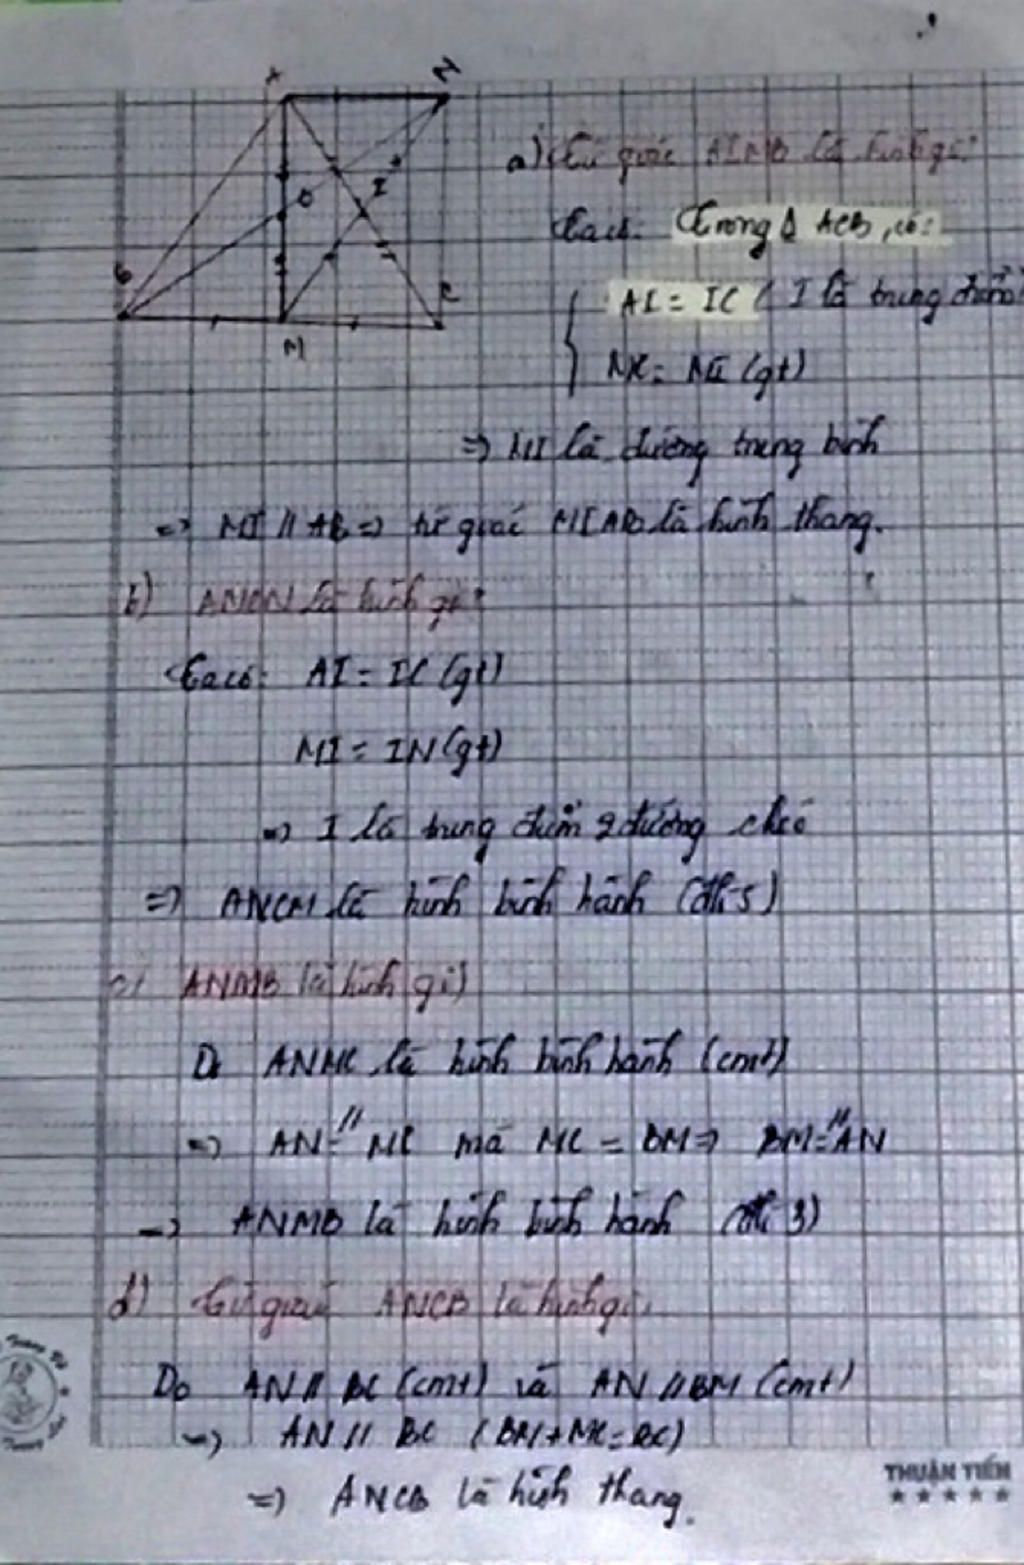 A N
O I
B M C
a) Tứ giác AIMB là hình gì?
Ta có: Trong Δ ACB, có:
AI = IC ( I là trung điểm
MC = MB (gt)
=> MI là đường trung bình
=> MI // AB => tứ giác MIAB là hình thang.
b) là hình gì?
Ta có: AI = IC (gt)
MI = IN (gt)
=> I là trung điểm 2 đường chéo
=> ANCM là hình bình hành (dh 5)
c) ANMB là hình gì?
Do ANMC là hình bình hành (cmt)
=> AN =// MC mà MC = BM => BM =// AN
=> ANMB là hình bình hành (dh 3)
d) Tứ giác ANCB là hình gì?
Do AN // (cmt) và AN // BM (cmt)
=> AN // BC (BM + MC = BC)
=> ANCB là hình thang.
THUẬN TIẾN